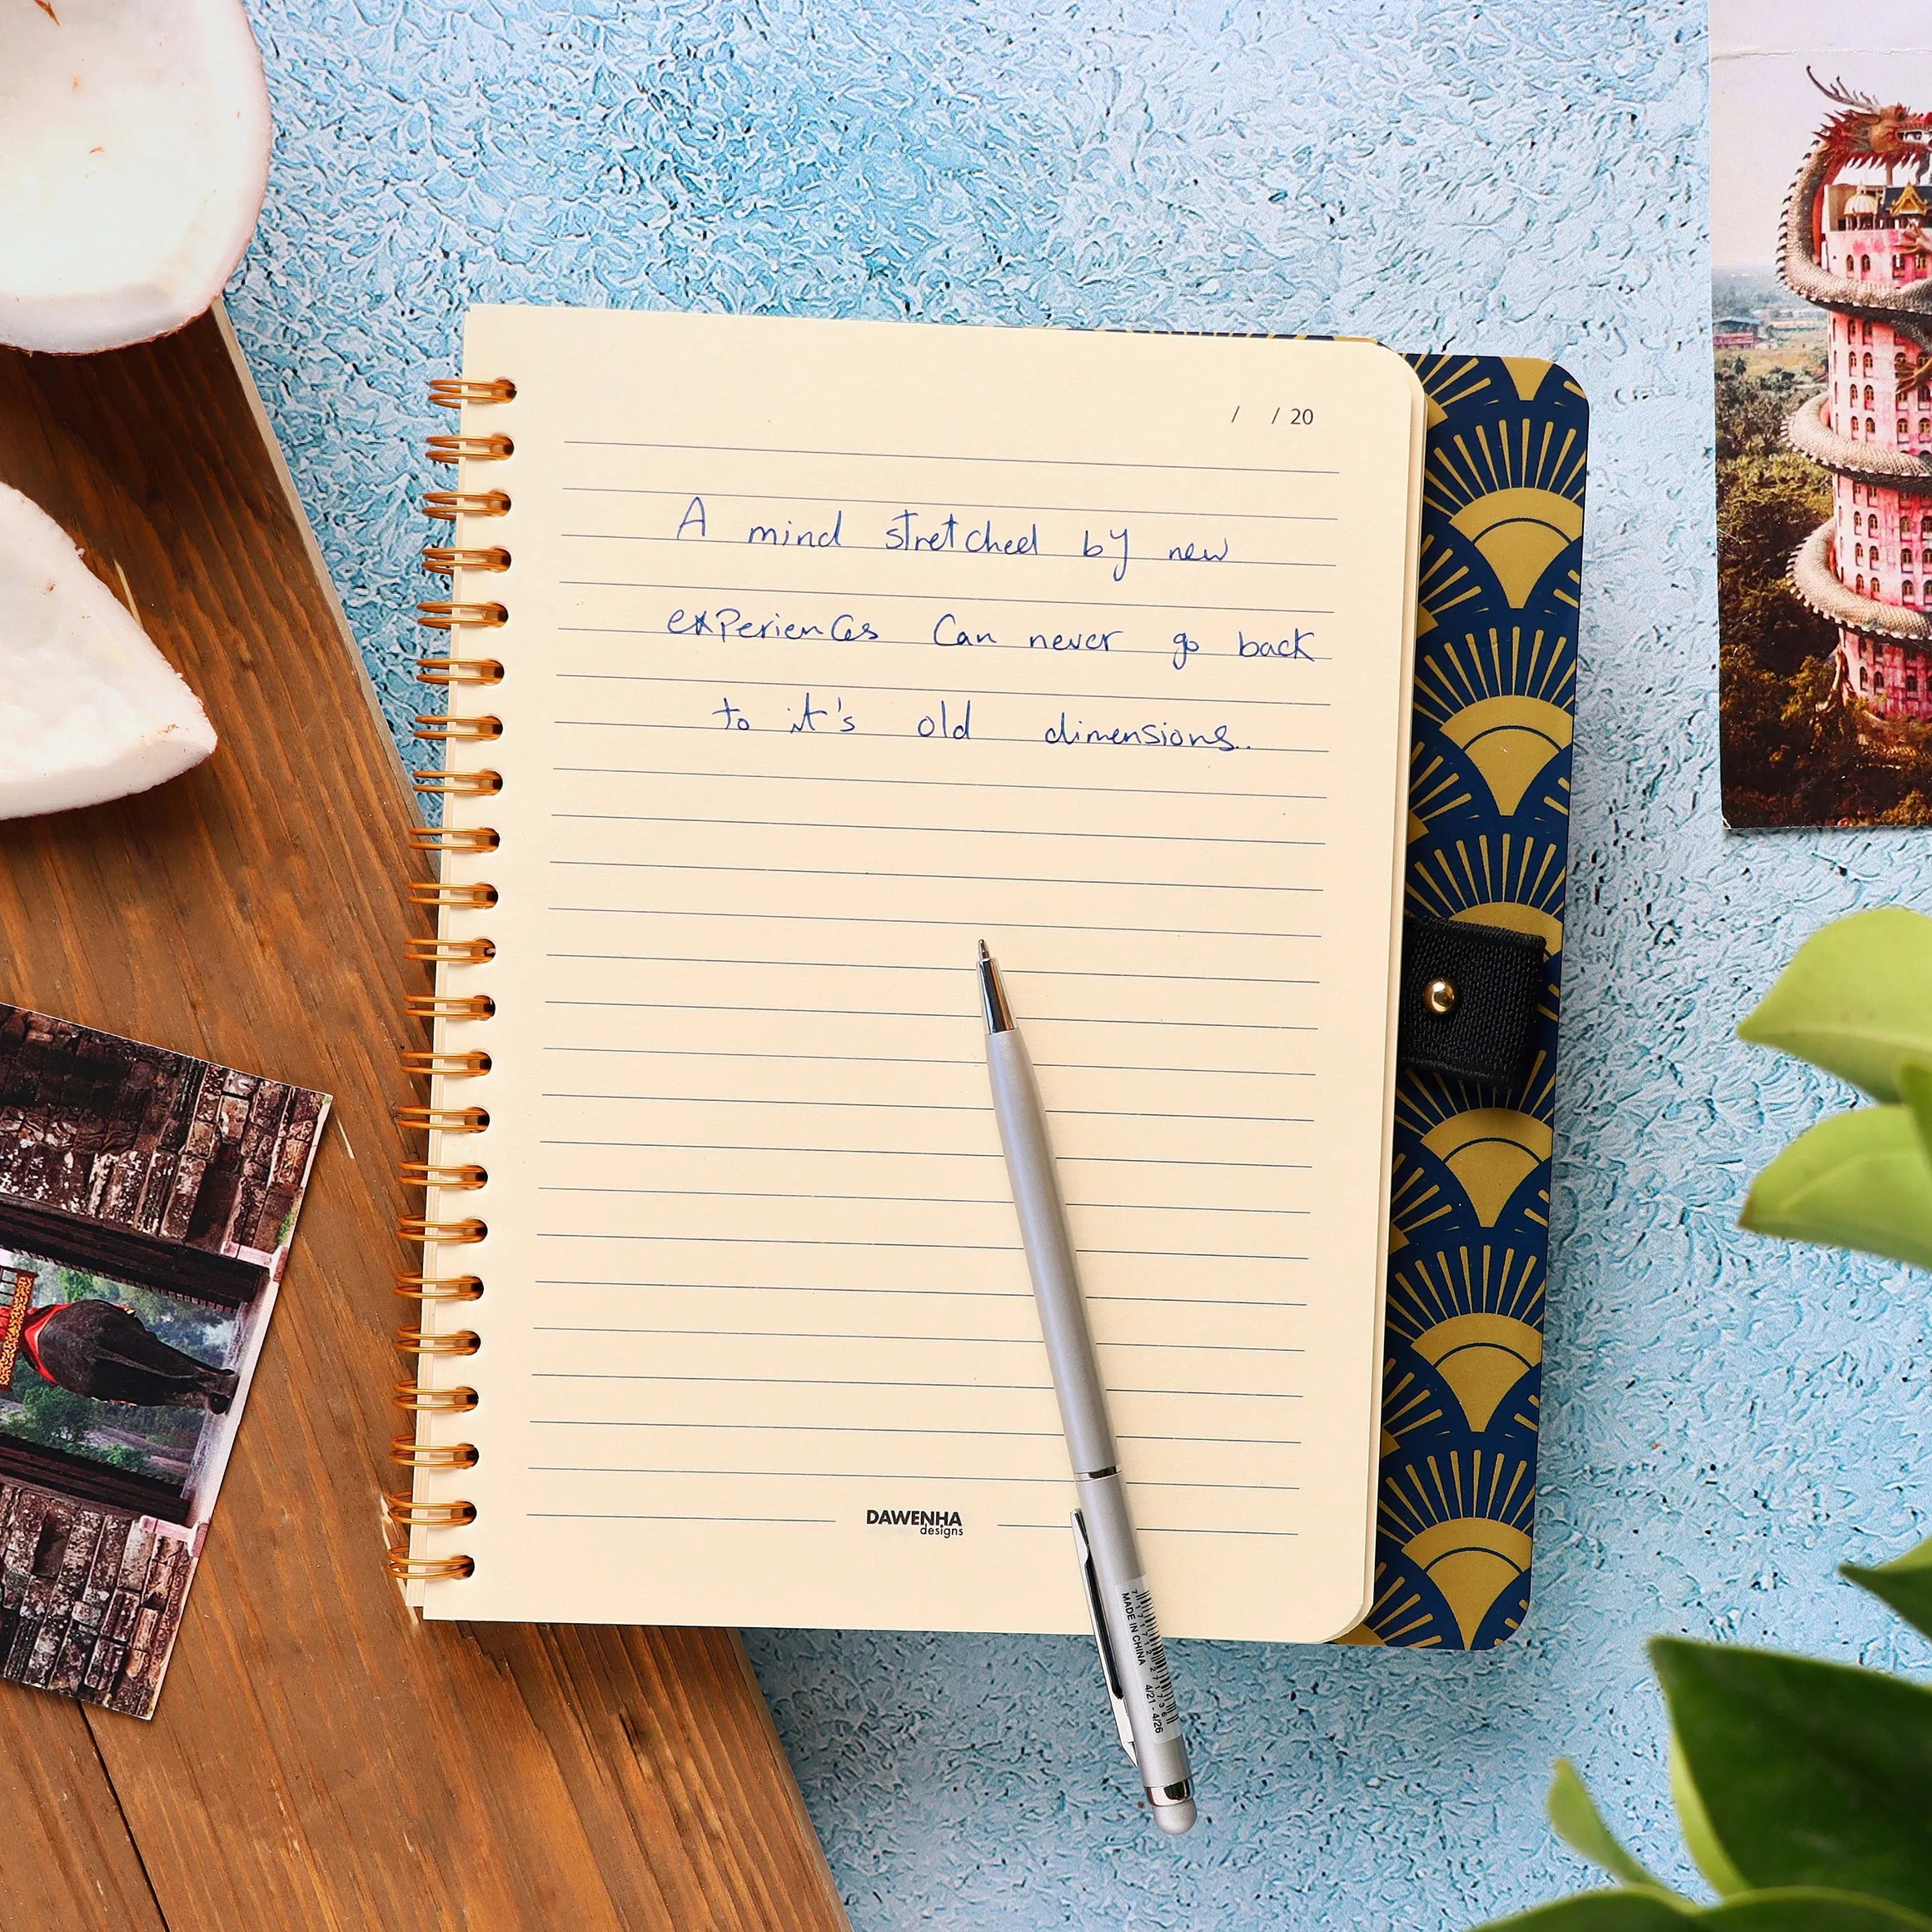 / / 20
A mind stretched by new
experiences can never go back
to it's old dimensions..
DAWENHA
designs
MADE IN CHINA 4/21 - 4/26